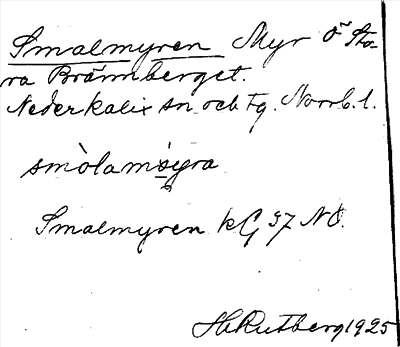 Smalmyren Myr Ö Sto-
ra Brännberget.
Nederkalix sn. och Tg. Norrb. l.
smòlamsyra
Smalmyren kG 37 NÖ.
H Rutberg 1925